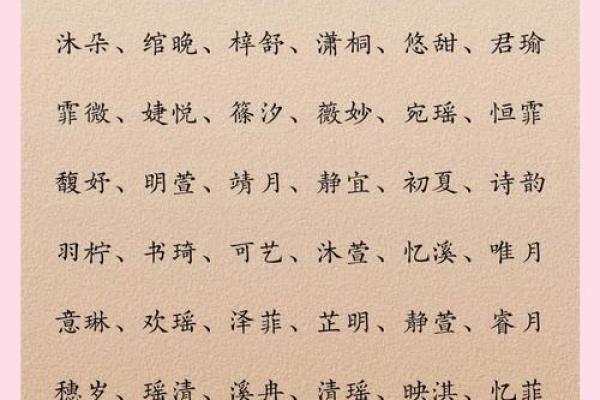 沐朵、绾晚、梓舒、潇桐、悠甜、君瑜
霏微、婕悦、篠汐、薇妙、宛瑶、恒霏
馥好、明萱、靖月、静宜、初夏、诗韵
羽柠、书琦、可艺、沐萱、忆溪、唯月
意琳、欢瑶、泽菲、芷明、静萱、睿月
穗岁、瑶清、溪冉、清瑶、映淇、忆菲